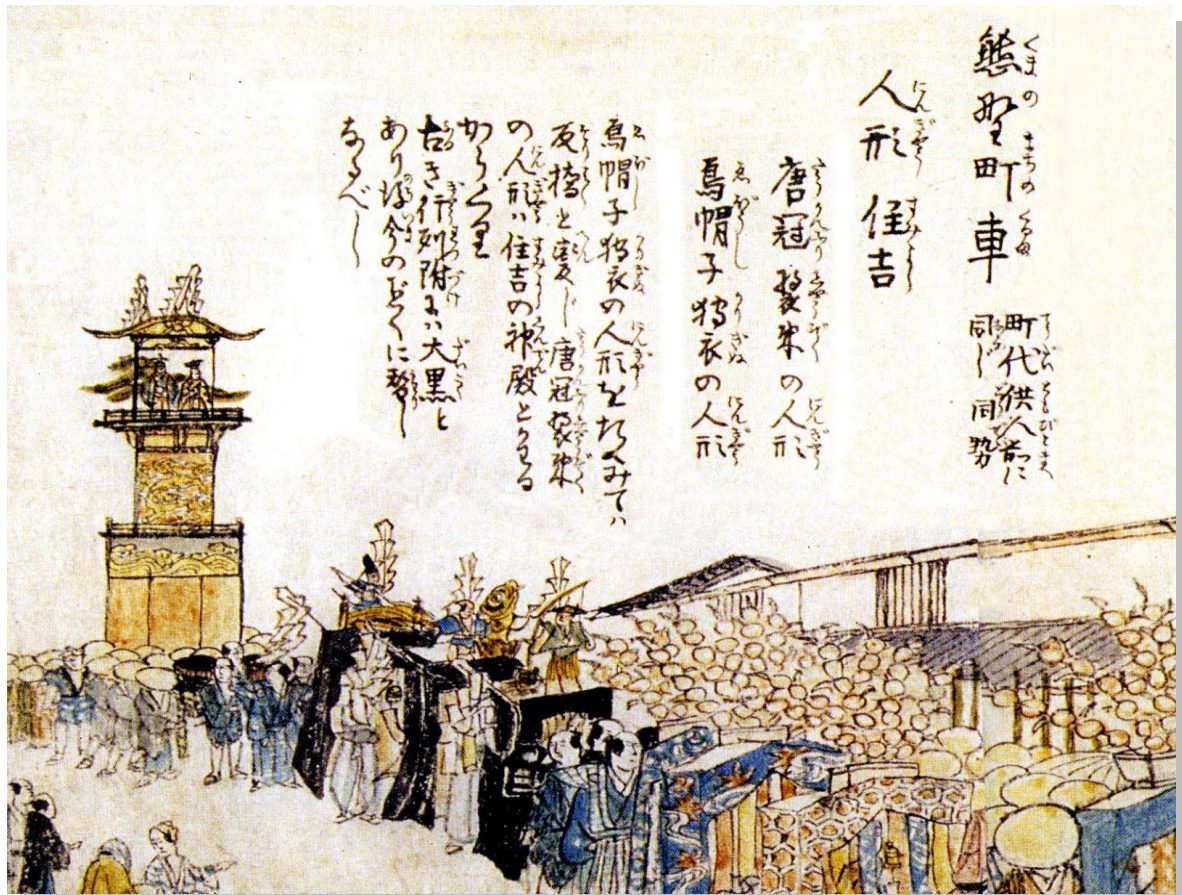 熊野町車
町代供人前に
同じ同勢
人形 住吉
唐冠装束の人形
烏帽子狩衣の人形
烏帽子狩衣の人形をたゝみてハ
反橋と変じ唐冠装束
の人形ハ住吉の神殿とかわる
からくり
古き行列附にハ大黒と
あり後今のごとくに製し
なるべし